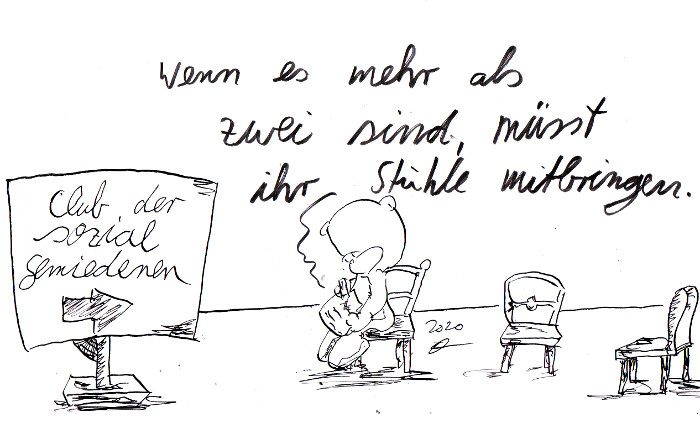 Wenn es mehr als
zwei sind, müsst
ihr Stühle mitbringen.
Club der
sozial
gemiedenen
2020